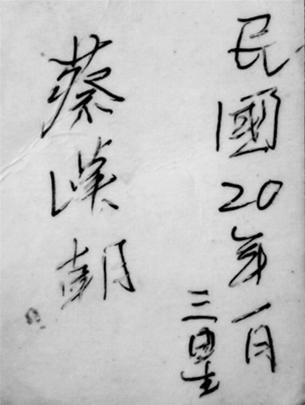 民國20年一月
三星
蔡漢朝